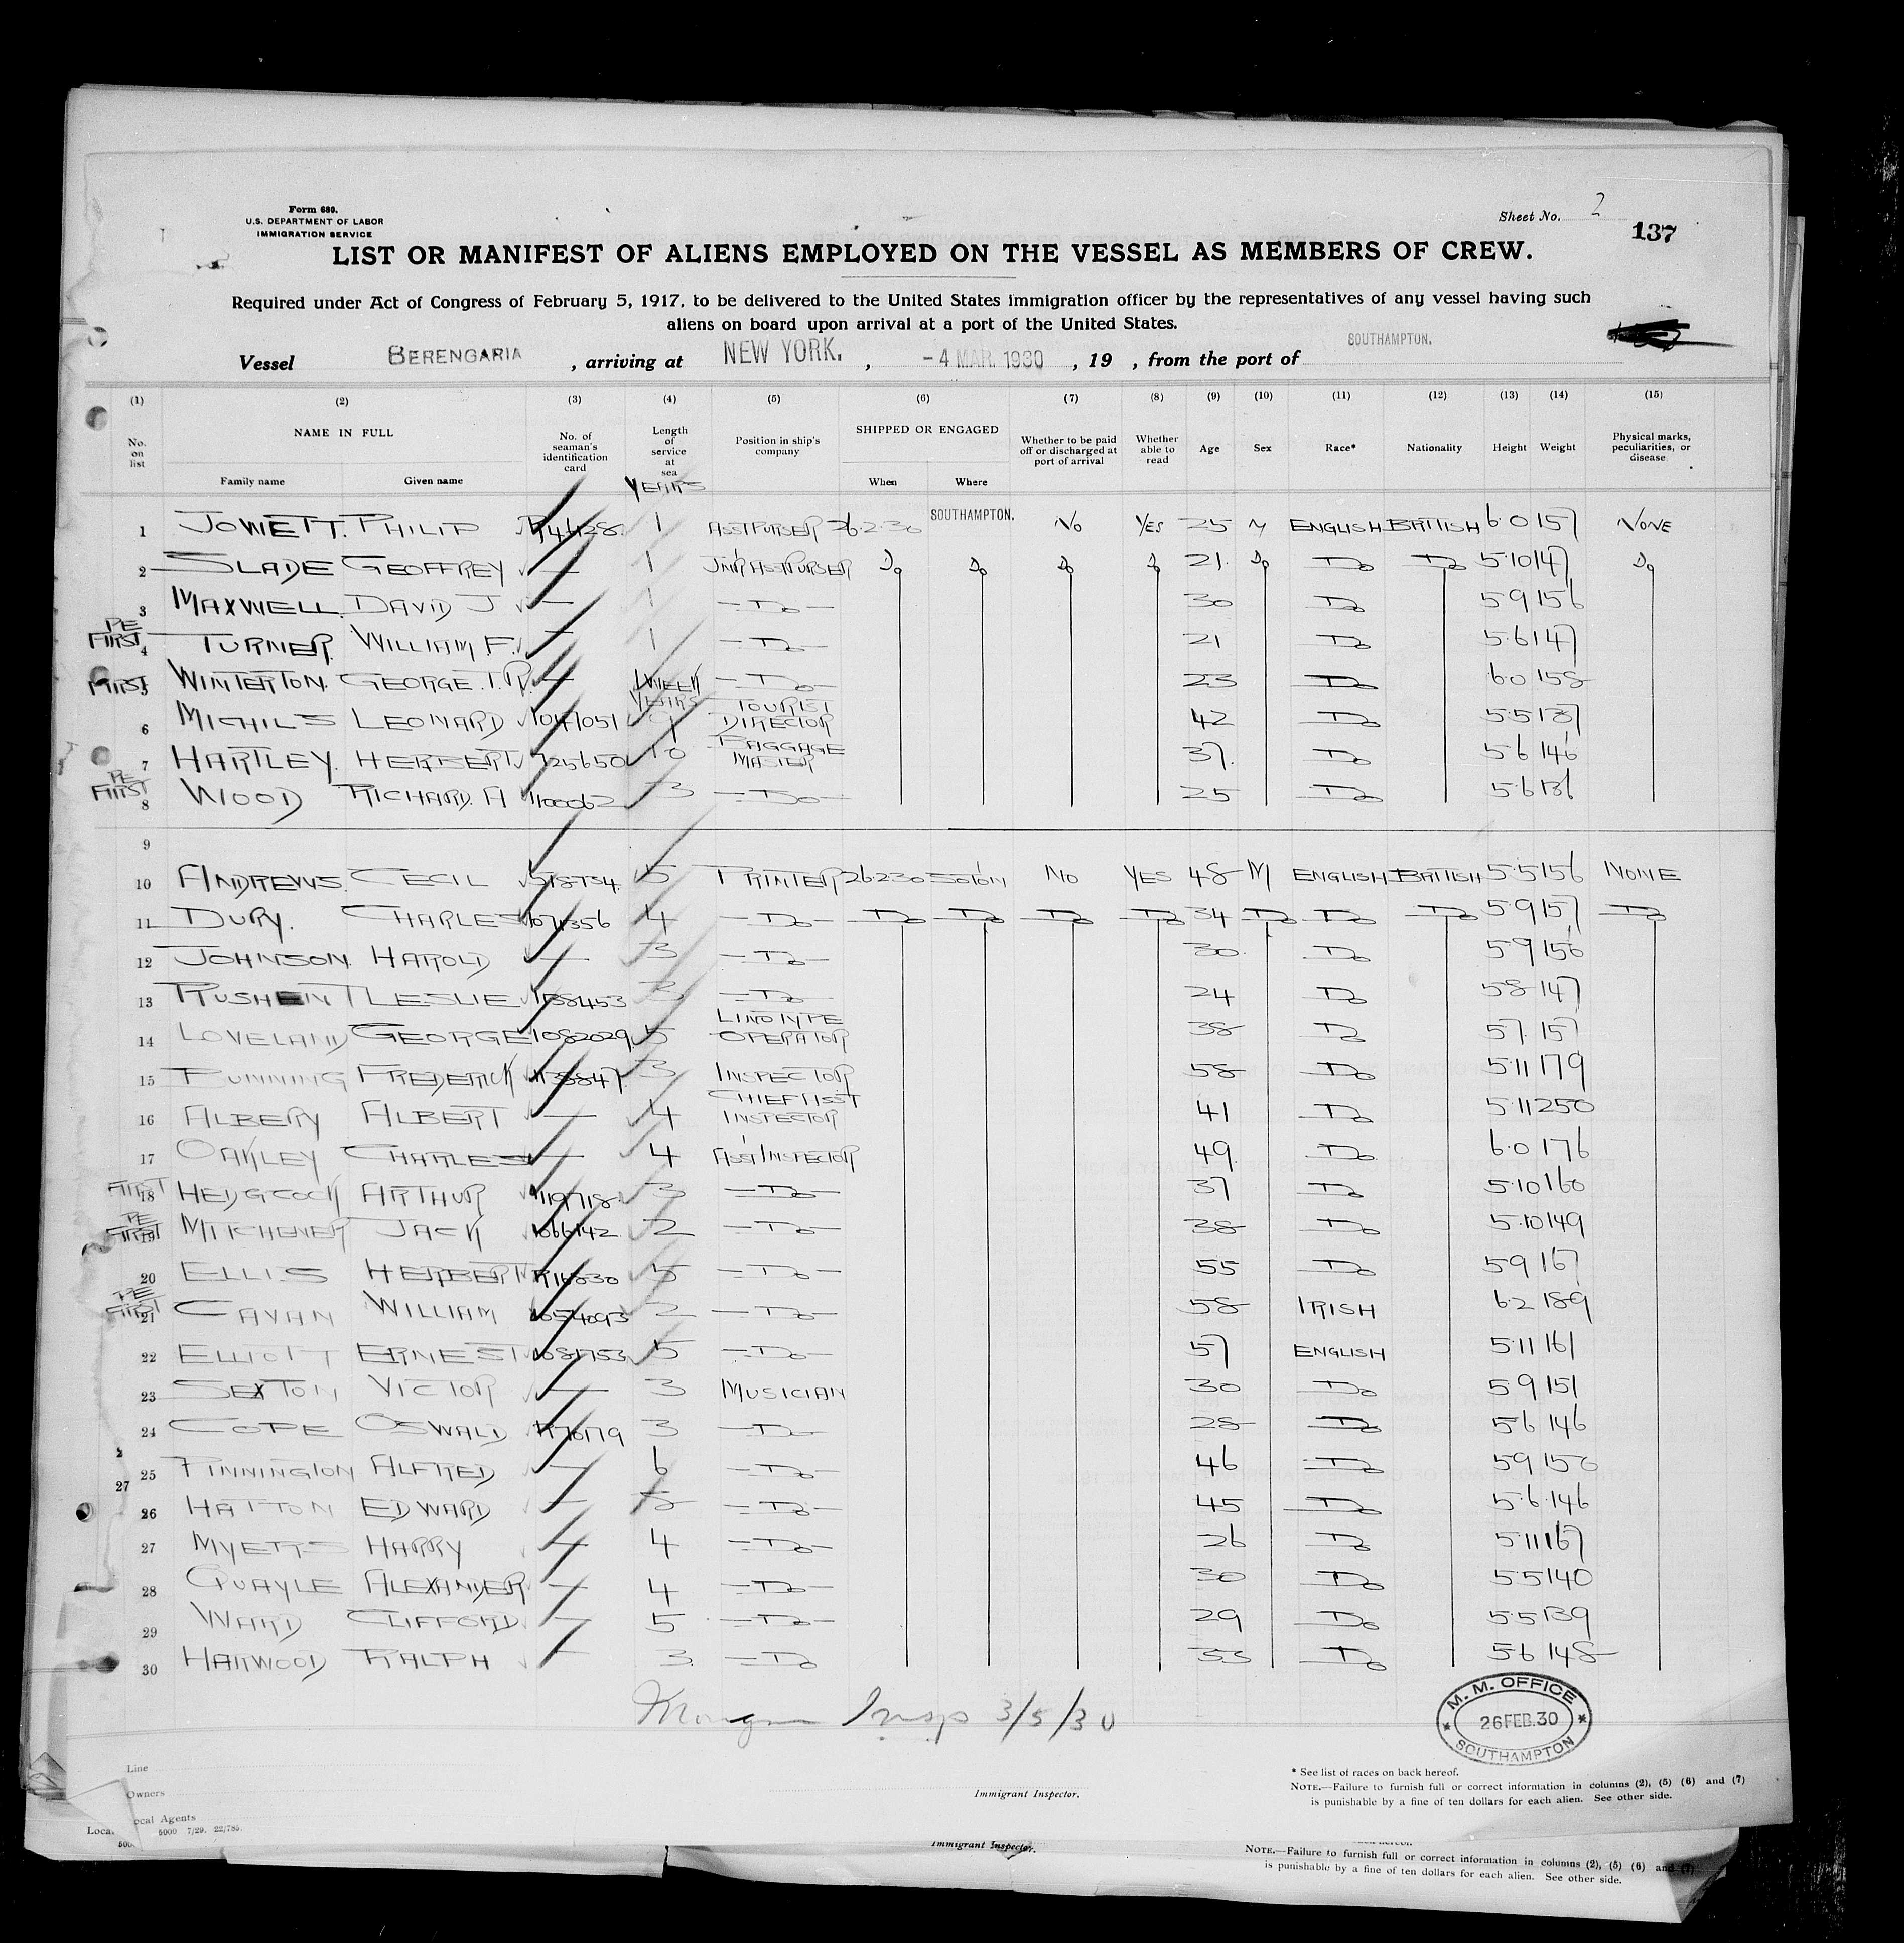 Form 680.
U.S. DEPARTMENT OF LABOR
IMMIGRATION SERVICE
Sheet No. 2
137
LIST OR MANIFEST OF ALIENS EMPLOYED ON THE VESSEL AS MEMBERS OF CREW.
Required under Act of Congress of February 5, 1917, to be delivered to the United States immigration officer by the representatives of any vessel having such
aliens on board upon arrival at a port of the United States.
Vessel BERENGARIA, arriving at NEW YORK., -4 MAR. 1930, 19 , from the port of SOUTHAMPTON.
(1) (2) (3) (4) (5) (6) (7) (8) (9) (10) (11) (12) (13) (14) (15)
No. on list NAME IN FULL No. of seaman's identification card Length of service at sea Position in ship's company SHIPPED OR ENGAGED Whether to be paid off or discharged at port of arrival Whether able to read Age Sex Race* Nationality Height Weight Physical marks, peculiarities, or disease
Family name Given name YEARS When Where
1 JOWETT. PHILIP 1 ASST PURSER 26.2.30 SOUTHAMPTON. NO YES 25 M ENGLISH BRITISH 6.0 157 NONE
2 SLADE GEOFFREY — 1 JNR ASST PURSER Do Do Do Do 21. Do Do Do 5.10 147 Do
3 MAXWELL DAVID J — 1 —Do— 30 Do 5.9 156
PE FIRST 4 TURNER. WILLIAM F. — 1 —Do— 21 Do 5.6 147
FIRST 5 WINTERTON. GEORGE. I.R. — 1 WEEK —Do— 23 Do 6.0 158
6 MICHILS LEONARD 1047051 YEARS TOURIST DIRECTOR 42 Do 5.5 137
7 HARTLEY. HERBERT 725650 10 BAGGAGE MASTER 37. Do 5.6 146
PE FIRST 8 WOOD RICHARD. A 1100062 3 —Do— 25 Do 5.6 136
9
10 ANDREWS. CECIL 518734. 5 PRINTER 26.2.30 SOTON NO YES 48 M ENGLISH BRITISH 5.5 156 NONE
11 DURY. CHARLES 1071356 4 —Do— Do Do Do Do 34 Do Do Do 5.9 157 Do
12 JOHNSON. HAROLD — 3 —Do— 30. Do 5.9 156
13 RUSHENT LESLIE 1138453 3 —Do— 24 Do 5.8 147
14 LOVELAND GEORGE 1082029 5 LINOTYPE OPERATOR 38 Do 5.7. 157
15 BUNNING FREDERICK 1138847. 3 INSPECTOR 58 Do 5.11 179
16 ALBERY ALBERT — 4 CHIEF ASST INSPECTOR 41 Do 5.11 250
17 OAKLEY CHARLES — 4 ASST INSPECTOR 49. Do 6.0 176
FIRST 18 HEDGCOCK ARTHUR 1119718 3 —Do— 37 Do 5.10 160
PE FIRST 19 MITCHENER JACK 1066142 2 —Do— 38 Do 5.10 149
20 ELLIS HERBERT 5 —Do— 55 Do 5.9 167
PE FIRST 21 CAVAN WILLIAM 1054093 2 —Do— 58 IRISH 6.2 189
22 ELLIOTT ERNEST 1081753 5 —Do— 57 ENGLISH 5.11 161
23 SEXTON VICTOR — 3 MUSICIAN 30 Do 5.9 151
24 COPE OSWALD 3 —Do— 28 Do 5.6 146
2
25 PINNINGTON ALFRED — 6 —Do— 46 Do 5.9 150
27
26 HATTON EDWARD — —Do— 45 Do 5.6 146
27 MYETTS HARRY — 4 —Do— 26 Do 5.11 167
28 QUAYLE ALEXANDER — 4 —Do— 30 Do 5.5 140
29 WARD CLIFFORD. — 5 —Do— 29 Do 5.5 139
30 HARWOOD RALPH — 3. —Do 33 Do 5.6 148
Insp 3/5/30
M. M. OFFICE
26 FEB. 30
SOUTHAMPTON
Line
Owners
Local Agents
5000 7/29. 22/785.
Immigrant Inspector.
* See list of races on back hereof.
NOTE.—Failure to furnish full or correct information in columns (2), (5) (6) and (7)
is punishable by a fine of ten dollars for each alien. See other side.
Immigrant Inspector.
NOTE.—Failure to furnish full or correct information in columns (2), (5) (6) and (7)
is punishable by a fine of ten dollars for each alien. See other side.